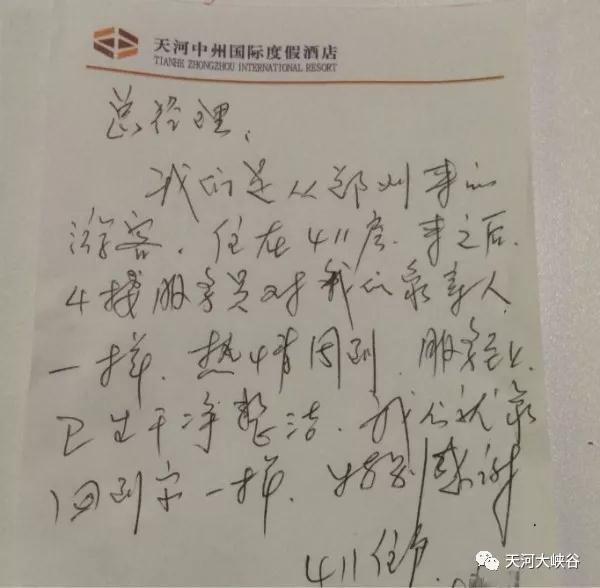 天河中州国际度假酒店
TIANHE ZHONGZHOU INTERNATIONAL RESORT
总经理、
我们是从郑州来的
游客、住在411房、来之后、
4楼服务员对我们象亲人
一样、热情周到、服务到位、
卫生干净整洁、我们就象
回到家一样、特别感谢
411住户、
天河大峡谷